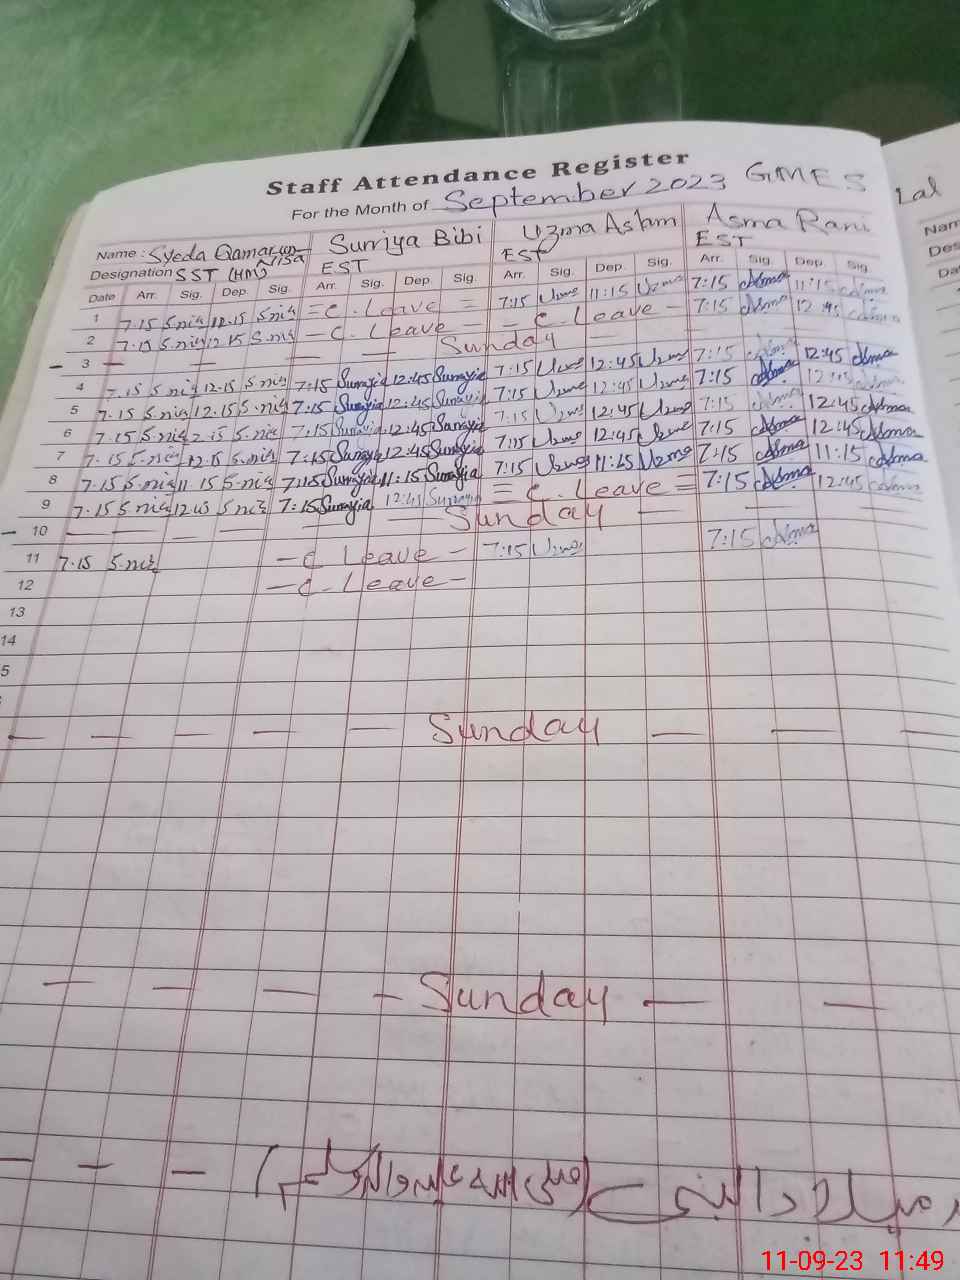 Staff Attendance Register
For the Month of September 2023 GMES
Name : Syeda Qamar un Nisa Surriya Bibi Uzma Aslam Asma Rani
Designation SST (HM) EST EST EST
Date Arr. Sig. Dep. Sig. Arr. Sig. Dep. Sig. Arr. Sig. Dep. Sig. Arr. Sig. Dep. Sig.
1 7.15 S.nisa 11.15 S.nisa = C. Leave = 7:15 Uzma 11:15 Uzma 7:15 Asma 11:15 Asma
2 7.15 S.nisa 12.15 S.nisa - C. Leave - - C. Leave - 7:15 Asma 12:45 Asma
3 — — — — Sunday — —
4 7.15 S.nisa 12.15 S.nisa 7:15 Surriya 12:45 Surriya 7:15 Uzma 12:45 Uzma 7:15 Asma 12:45 Asma
5 7.15 S.nisa 12.15 S.nisa 7:15 Surriya 12:45 Surriya 7:15 Uzma 12:45 Uzma 7:15 Asma 12:45 Asma
6 7.15 S.nisa 2.15 S.nisa 7:15 Surriya 12:45 Surriya 7:15 Uzma 12:45 Uzma 7:15 Asma 12:45 Asma
7 7.15 S.nisa 12.15 S.nisa 7:15 Surriya 12:45 Surriya 7:15 Uzma 12:45 Uzma 7:15 Asma 12:45 Asma
8 7.15 S.nisa 11.15 S.nisa 7:15 Surriya 11:15 Surriya 7:15 Uzma 11:15 Uzma 7:15 Asma 11:15 Asma
9 7.15 S.nisa S.nisa 7:15 Surriya 12:45 Surriya = C. Leave = 7:15 Asma 12:45 Asma
10 — — — — — Sunday — —
11 7.15 S.nisa - C Leave - 7:15 Uzma 7:15 Asma
12 - C. Leave -
13
14
5
— — — — — Sunday — — —
— — — — Sunday — —
— — — میلاد النبی
Lal
Nam
Des
Da
11-09-23 11:49